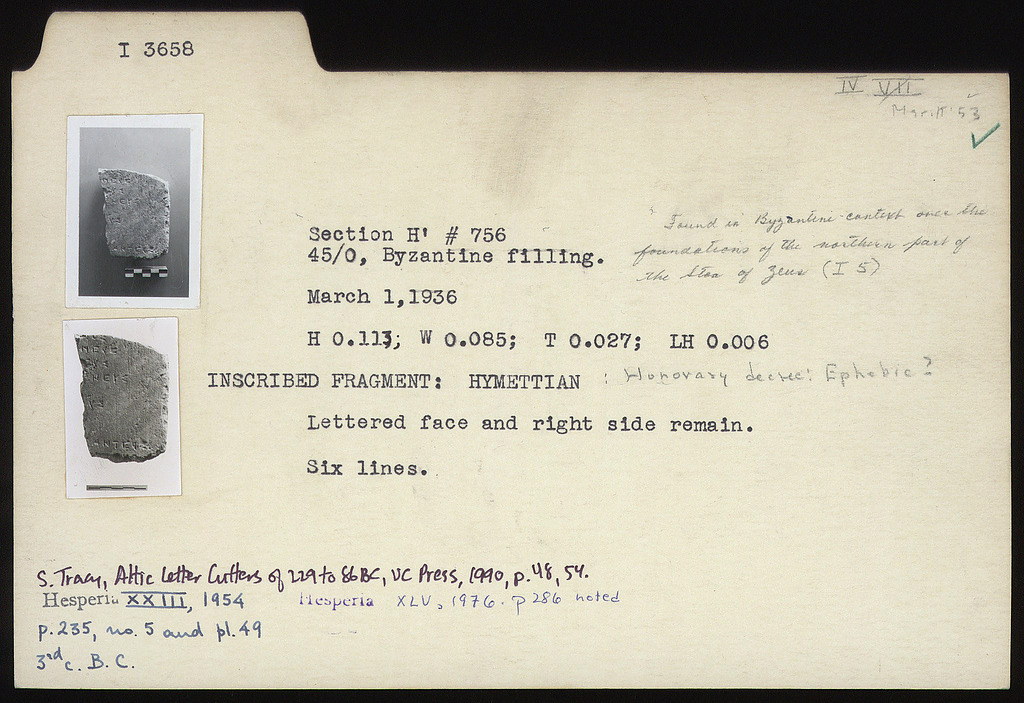 I 3658
IV VII
Meritt '53
Section H' # 756
45/0, Byzantine filling.
Found in Byzantine context over the
foundations of the northern part of
the Stoa of Zeus (I 5)
March 1,1936
H 0.113; W 0.085; T 0.027; LH 0.006
INSCRIBED FRAGMENT: HYMETTIAN : Honorary decree: Ephebic?
Lettered face and right side remain.
Six lines.
S. Tracy, Attic Letter Cutters of 229 to 86 BC, UC Press, 1990, p. 48, 54.
Hesperia XXIII, 1954 Hesperia XLV, 1976. p 286 noted
p. 235, no. 5 and pl. 49
3rd c. B.C.